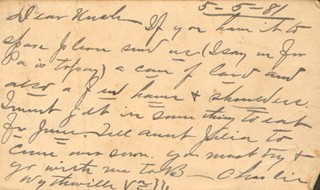 5-5-81
Dear Hugh If you have it to
spare please send us (I say us for
Pa is to pay) a can of lard and
also a few hams & shoulders.
I must get in something to eat
for June. Tell aunt Julia to
come over soon. you must try &
go with me to B— Charlie
Wytheville Va